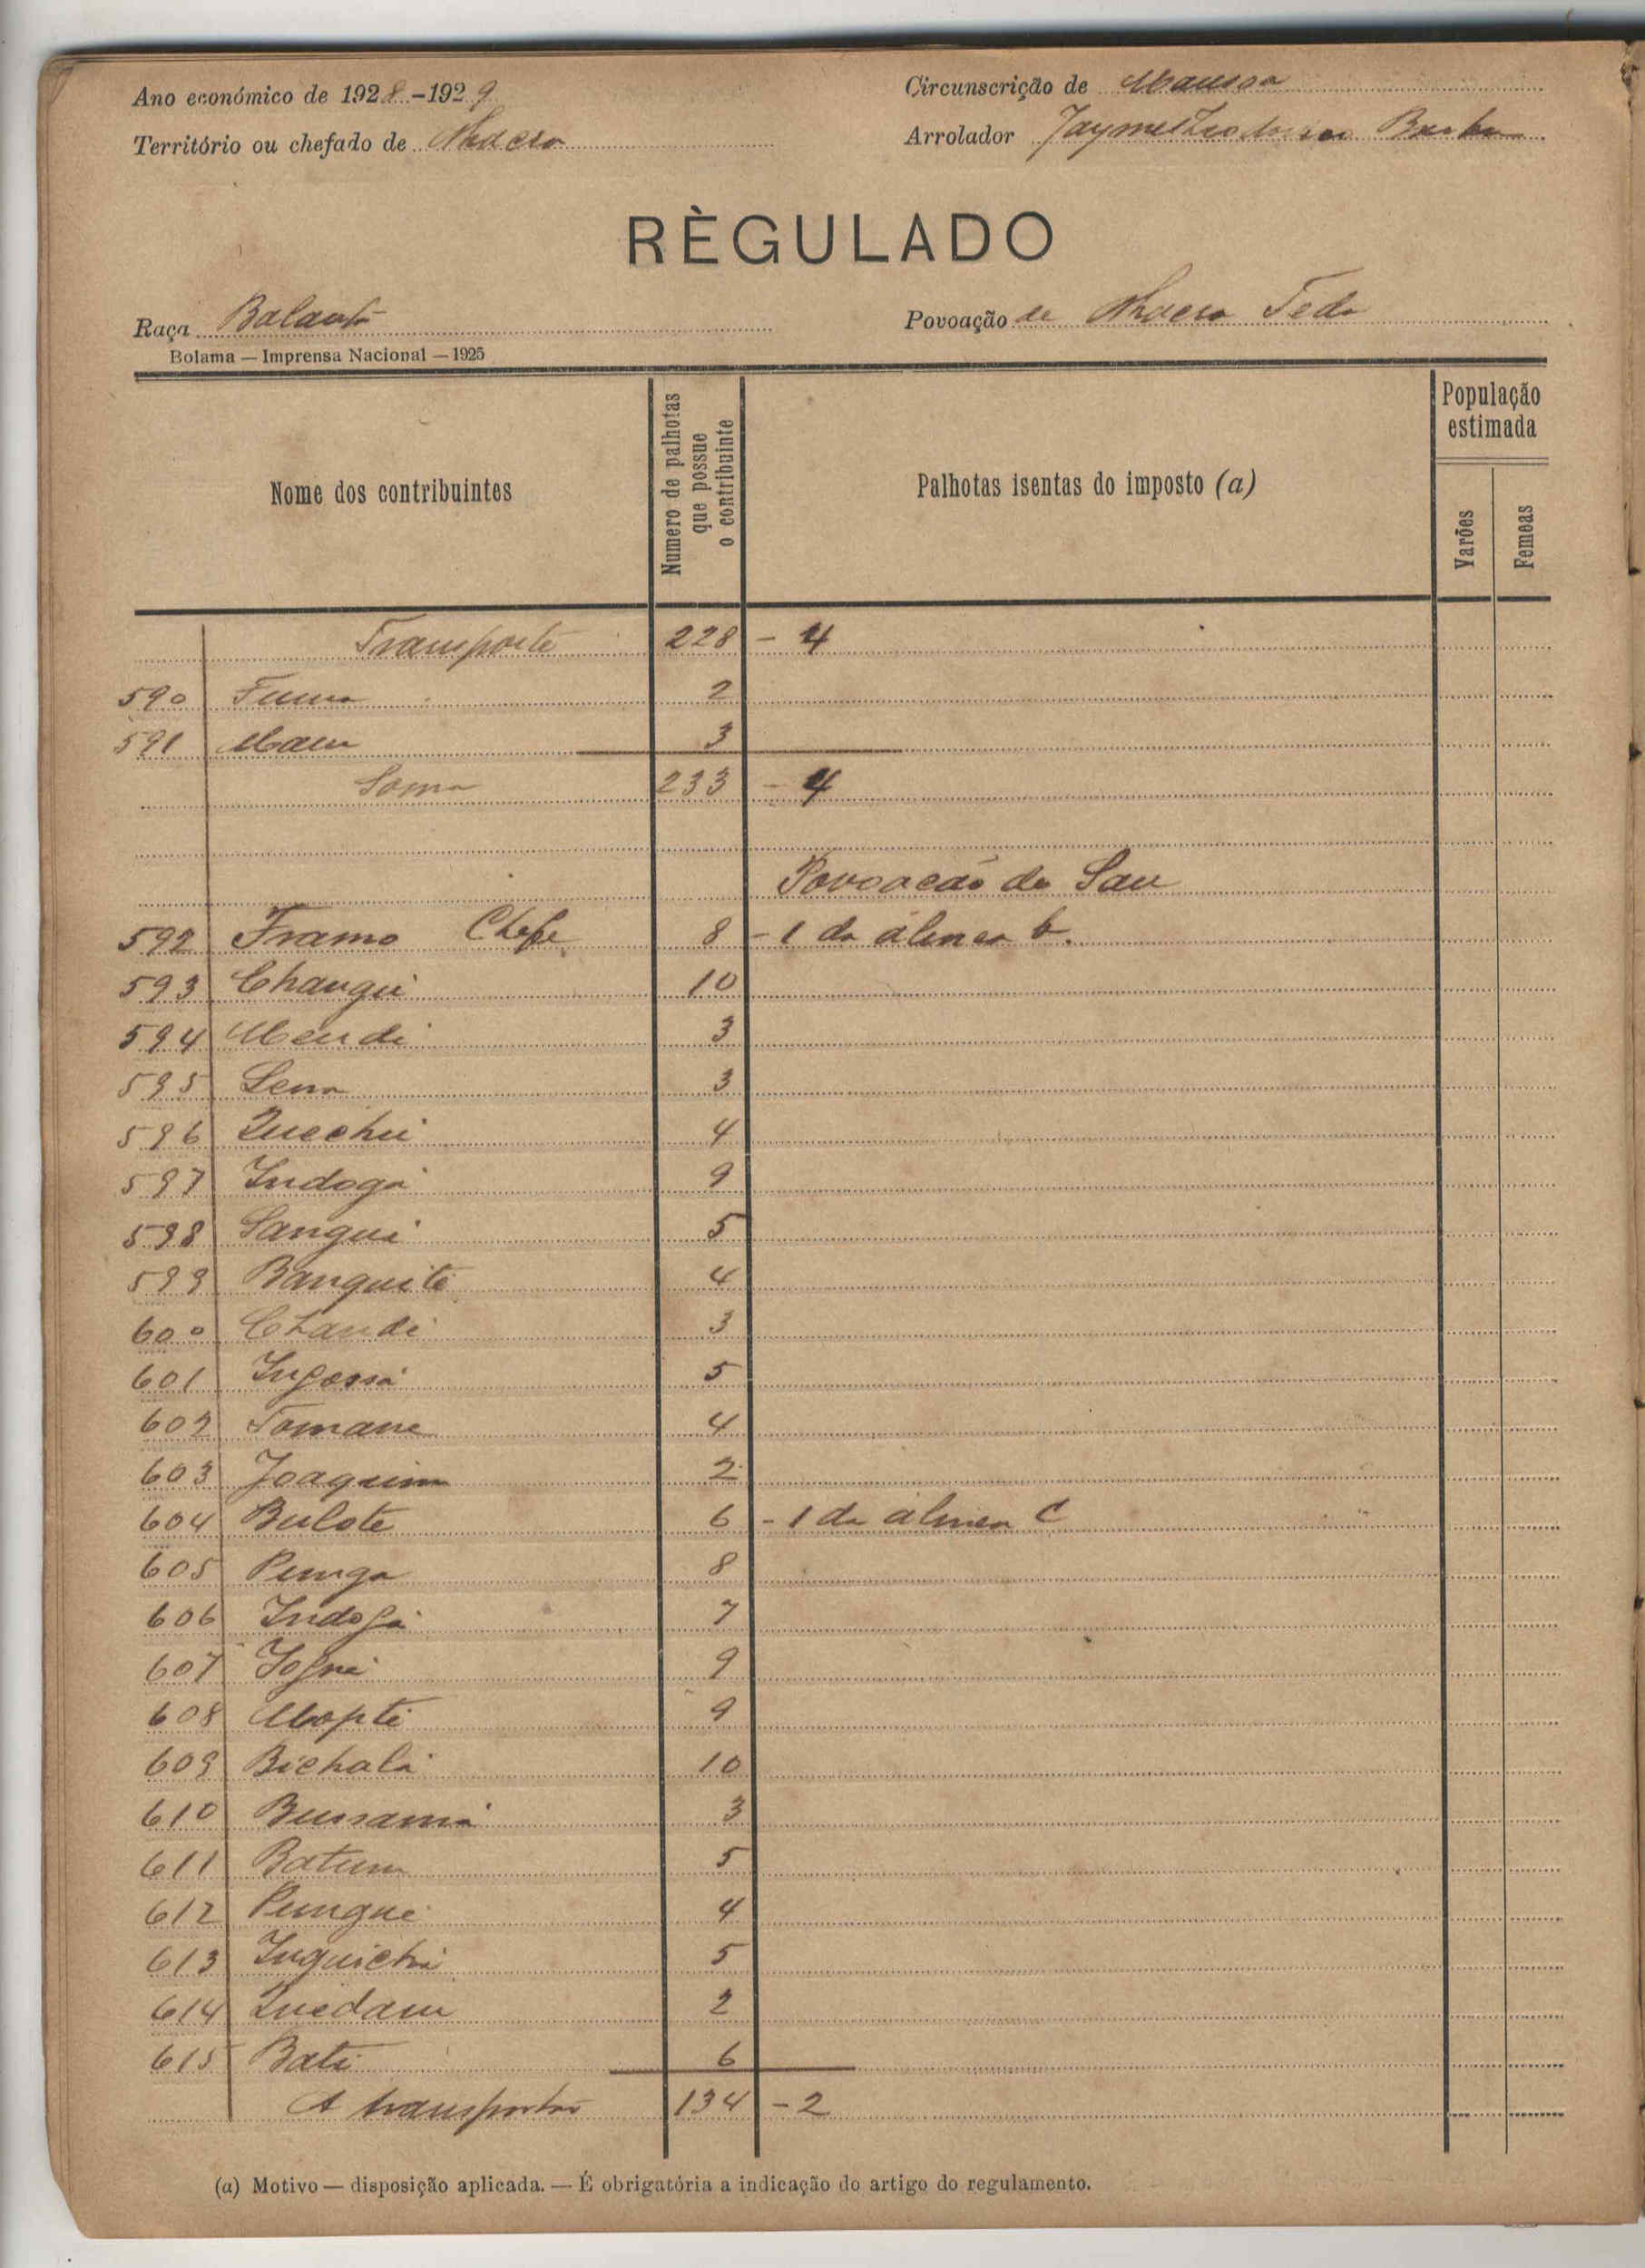 Ano económico de 1928-1929
Circunscrição de Mansoa
Território ou chefado de Nhacra
Arrolador Jayme
RÈGULADO
Raça Balanta
Povoação de Nhacra Teda
Bolama — Imprensa Nacional — 1925
Nome dos contribuintes
Numero de palhotas que possue o contribuinte
Palhotas isentas do imposto (a)
População estimada
Varões
Femeas
Transporte 228 - 4
590 Fuma 2
591 3
Soma 233 - 4
Povoação de Sau
592 Framo Chefe 8 - 1 da álinea b.
593 Changui 10
594 Mendi 3
595 Sena 3
596 Quechu 4
597 Indoga 9
598 Sangui 5
599 Banguite 4
600 Chandi 3
601 5
602 Tomane 4
603 Joaquim 2
604 Bulote 6 - 1 da álinea C
605 Punga 8
606 7
607 9
608 Mopte 9
609 Bichala 10
610 3
611 Batum 5
612 Pungue 4
613 5
614 2
615 Bati 6
A transportar 134 - 2
(a) Motivo — disposição aplicada. — É obrigatória a indicação do artigo do regulamento.